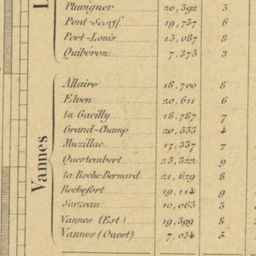 Pluvigner 20,592 5
Pont-Scorff 19,757 6
Port-Louis 8
Quiberon 7,373 3
Vannes
Allaire 18,700 8
Elven 20,611 6
la Gacilly 18,787 7
Grand-Champ 20,555 4
Muzillac 17,337 7
Questembert 9
la Roche-Bernard 21,679 8
Rochefort 19,114 9
Sarzeau 10,063 3
Vannes (Est) 19,599 8
Vannes (Ouest) 7,034 5